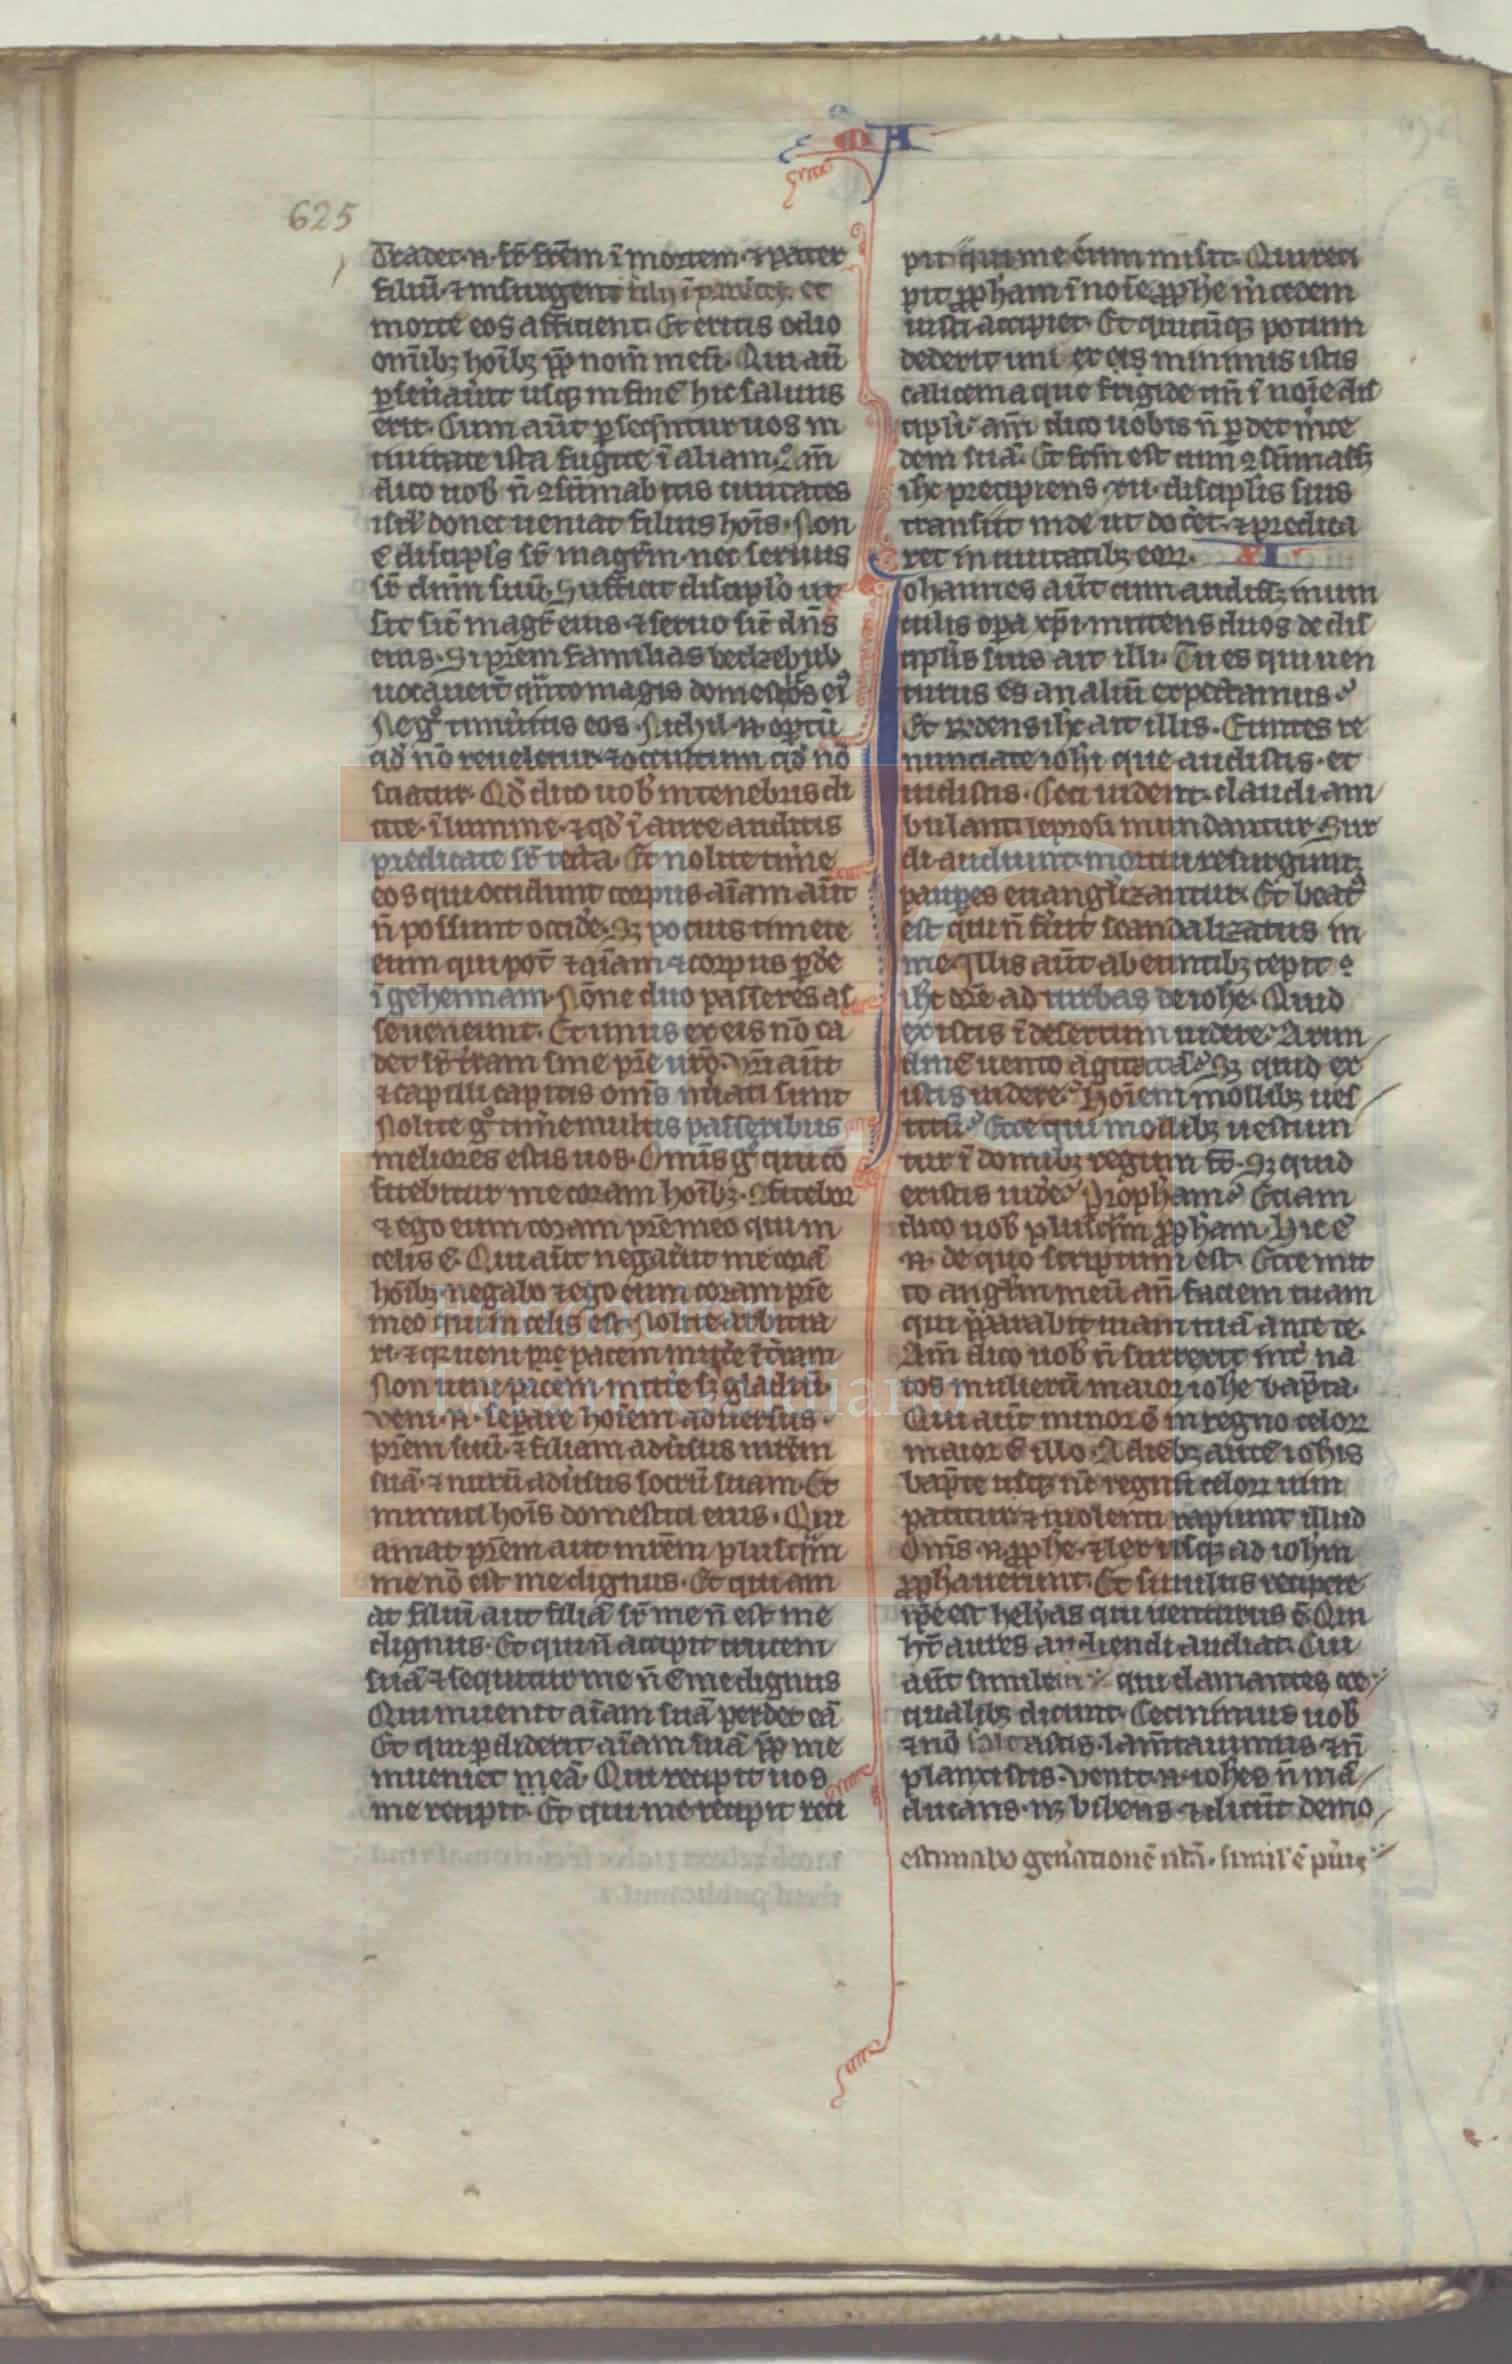 M A
625
Tradet .n. fr̄ frēm ī mortem ⁊ pater
filiū ⁊ insurgent filij ī parētes et
morte eos afficient. Et eritis odio
om̄ibꝫ hoībꝫ ꝓp̄ nom̄ meū. Qui aū
ꝑseuāūt usqꝫ in finē hic saluus
erit. Cum aūt ꝑseqūtur uos in
ciuitate ista fugite ī aliam. Am̄
dico uob n̄ ꝯsūmabitis ciuitates
isrl̄ donec ueniat filius hoīs. Non
ē discipls̄ sr̄ magrm̄ nec seruus
sr̄ dn̄m suū. Sufficit disciplō ut
sit sic̄ magr̄ eius ⁊ seruo sic̄ dn̄s
eius. Si pr̄em familias beelzebub
uocauerūt q̄nto magis domesticos ei᷒
Ne gͦ timūitis eos. Nichil .n. opertū
qđ nō reueletur ⁊ occultum qđ nō
sciatur. Qđ dico uob in tenebris di
cite ī lumine ⁊ qđ ī aure auditis
predicate sr̄ tecta. Et nolite tim̄e
eos qui occidunt corpus aīam aūt
n̄ possunt occide. Sꝫ pocius timete
eum qui pot̄ ⁊ aīam ⁊ corpus ꝑde
ī gehennam. Nōne duo passeres as
se ueneunt. Et unus ex eis nō ca
det sr̄ tram sine pr̄e ur̄o. Ur̄i aūt
⁊ capilli capitis om̄s nūati sunt
Nolite gͦ tim̄e multis passeribus
meliores estis uos. Om̄is gͦ qui cō
fitebitur me coram hoībꝫ ꝯfitebor
⁊ ego eum coram pr̄e meo qui in
celis ē. Qui aūt negau̇it me corā
hoībꝫ negabo ⁊ ego eum coram pr̄e
meo qui in celis est. Nolite arbitra
ri qꝫ ueni pacem mitte ī tram
Non ueni pacem mitte sꝫ gladiū
Veni .n. separe hoīem aduersus
pr̄em suū ⁊ filiam adu̇sus mr̄em
suā ⁊ nurū adu̇sus socrū suam. Et
inimici hoīs domestici eius. Qui
amat pr̄em aut mr̄em plusq̄m
me nō est me dignus. Et qui am
at filiū aut filiā sr̄ me n̄ est me
dignus. Et qui n̄ accipit crucem
suā ⁊ sequitur me n̄ ē me dignus
Qui inuenit aīam suā perdet eā
Et qui ꝑdiderit aīam suā ꝓp̄ me
inueniet eā. Qui recipit uos
me recipit. Et qui me recipit reci
pit eum qui me misit. Qui reci
pit ꝓpham ī noīe ꝓphe m̄cedem
iusti accipiet. Et quicūqꝫ potum
dederit uni ex eis minimis istis
calicem aque frigide tm̄ ī noīe dis
cipli am̄ dico uobis n̄ ꝑdet m̄ce
dem suā. Et fc̄m est cum ꝯsūmass̄
ihc precipiens .xii. discipl̄is suis
transiit inde ut doc̄et ⁊ predica
ret in ciuitatibꝫ eoꝝ. XI
Iohannes aūt cum audiss̄ in uin
culis opa xp̄i mittens duos de dis
cipl̄is suis ait illi. Tu es qui uen
turus es an aliū expectamus
Et rn̄dens ihc ait illis. Euntes re
nunciate iohi que audistis et
uidistis. Ceci uident claudi am
bulant leprosi mundantur. Sur
di audiunt mortui resurgunt
pauꝑes euanglizantur. Et beat᷒
est qui n̄ fūit scandalizatus in
me. Illis aūt abeuntibꝫ cepit
ihc dic̄e ad turbas de iohe. Quid
existis ī desertum uidere. Arun
dinē uento agitatā. Sꝫ quid ex
istis uidere. Hoīem mollibꝫ ues
titū. Ecce qui mollibꝫ uestiun
tur ī domibꝫ regum st̄. Sꝫ quid
existis uide. Propham. Etiam
dico uob plusq̄m ꝓpham. Hic ē
.n. de quo scriptum est. Ecce mit
to anglm̄ meū an̄ faciem tuam
qui p̄parabit uiam tuā ante te.
Am̄ dico uob n̄ surrexit int̄ na
tos mulierū maior iohe bapt̄a.
Qui aūt minor ē in regno celoꝝ
maior ē illo. A diebꝫ autē iohis
bapt̄e usqꝫ nc̄ regnū celoꝝ uim
patitur ⁊ uiolenti rapiunt illud
Om̄s .n. ꝓphe ⁊ lex usqꝫ ad iohm
ꝓphauerunt. Et si uultis recipere
ip̄e est helyas qui uenturus ē. Qui
ht̄ aures audiendi audiat. Cui
aūt similem qui clamantes co
equalibꝫ dicunt. Cecinimus uob
⁊ nō saltastis lam̄tauimus ⁊ n̄
planxistis. Venit .n. iohes n̄ mā
ducans nꝫ bibens ⁊ dicūt demo
estimabo gen̄ationē istā. simil' ē pūis
FLG
Fundación
Lázaro Galdiano